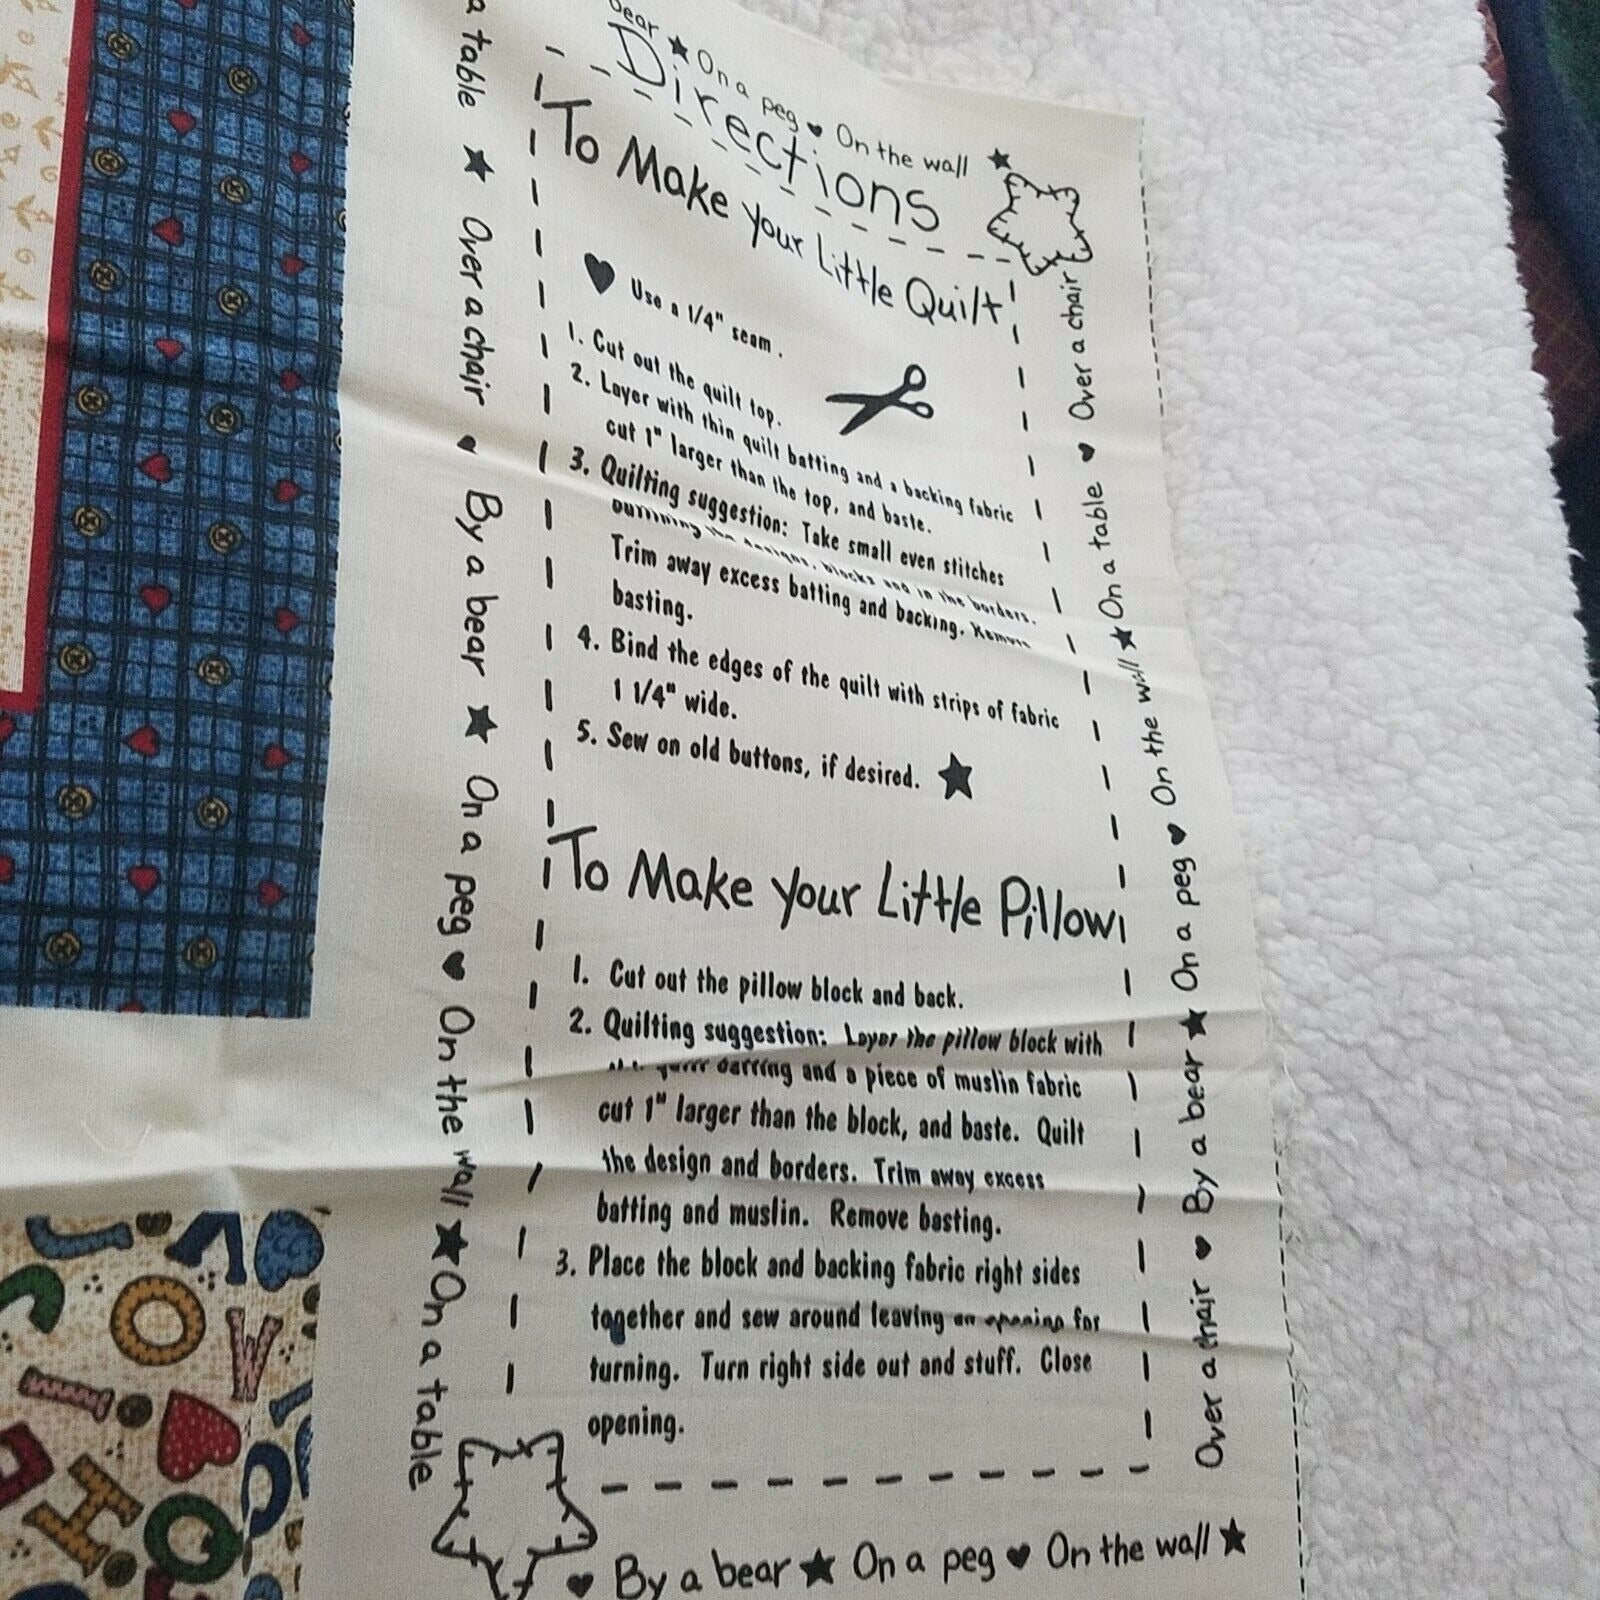 bear ★ On a peg ♥ On the wall ★
Directions
To Make your Little Quilt
♥ Use a 1/4" seam.
1. Cut out the quilt top.
2. Layer with thin quilt batting and a backing fabric
cut 1" larger than the top, and baste.
3. Quilting suggestion: Take small even stitches
outlining the designs, blocks and in the borders.
Trim away excess batting and backing. Remove
basting.
4. Bind the edges of the quilt with strips of fabric
1 1/4" wide.
5. Sew on old buttons, if desired. ★
To Make your Little Pillow
1. Cut out the pillow block and back.
2. Quilting suggestion: Layer the pillow block with
quilt batting and a piece of muslin fabric
cut 1" larger than the block, and baste. Quilt
the design and borders. Trim away excess
batting and muslin. Remove basting.
3. Place the block and backing fabric right sides
together and sew around leaving an opening for
turning. Turn right side out and stuff. Close
opening.
a table ★ Over a chair ♥ By a bear ★ On a peg ♥ On the wall ★ On a table
Over a chair ♥ By a bear ★ On a peg ♥ On the wall ★ On a table ♥ Over a chair
♥ By a bear ★ On a peg ♥ On the wall ★